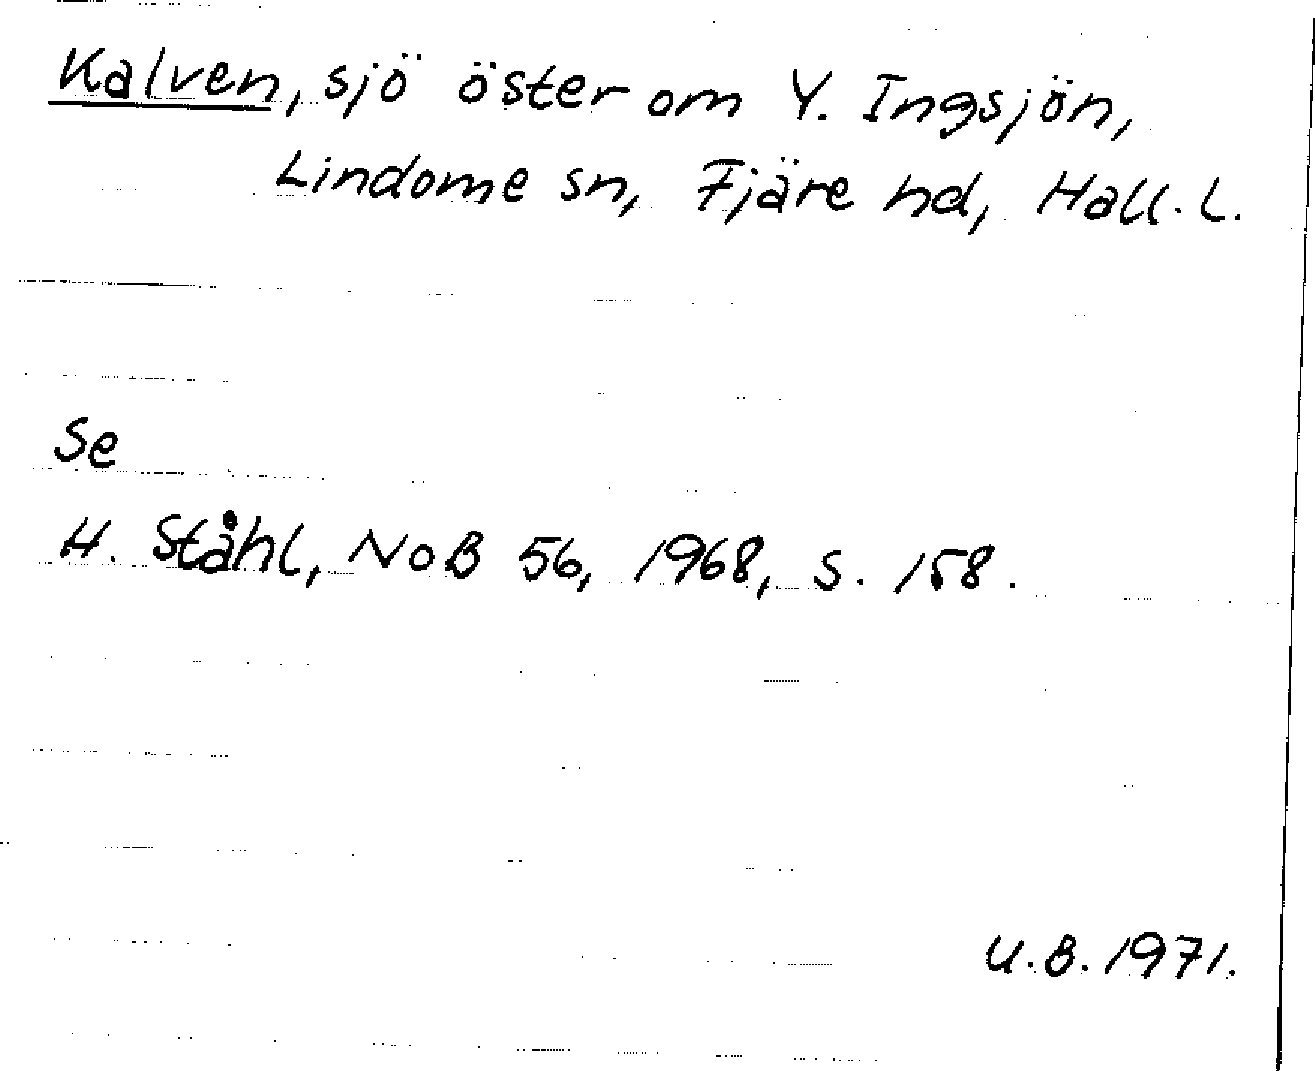 Kalven, sjö öster om Y. Ingsjön,
Lindome sn, Fjäre hd, Hall. L.
Se
H. Ståhl, NoB 56, 1968, s. 158.
U.B. 1971.